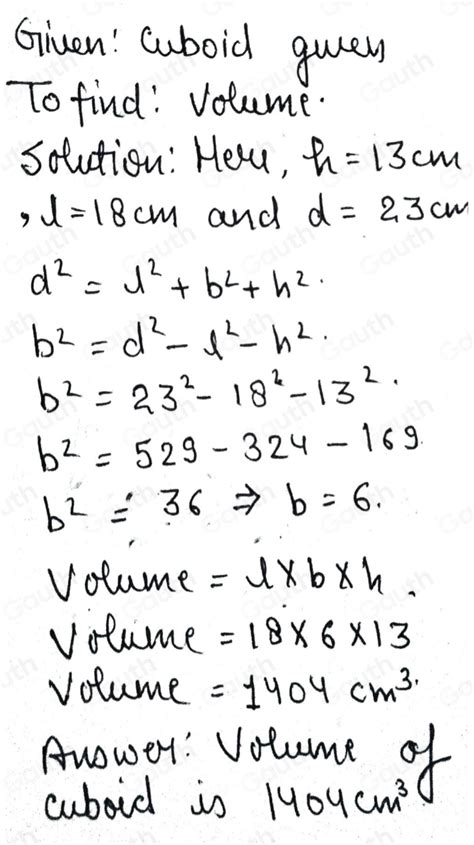 Given: Cuboid given
To find: Volume.
Solution: Here, h = 13cm
, l = 18cm and d = 23cm
d² = l² + b² + h².
b² = d² - l² - h².
b² = 23² - 18² - 13².
b² = 529 - 324 - 169.
b² = 36 ⇒ b = 6.
Volume = l × b × h.
Volume = 18 × 6 × 13
Volume = 1404 cm³.
Answer: Volume of
cuboid is 1404cm³